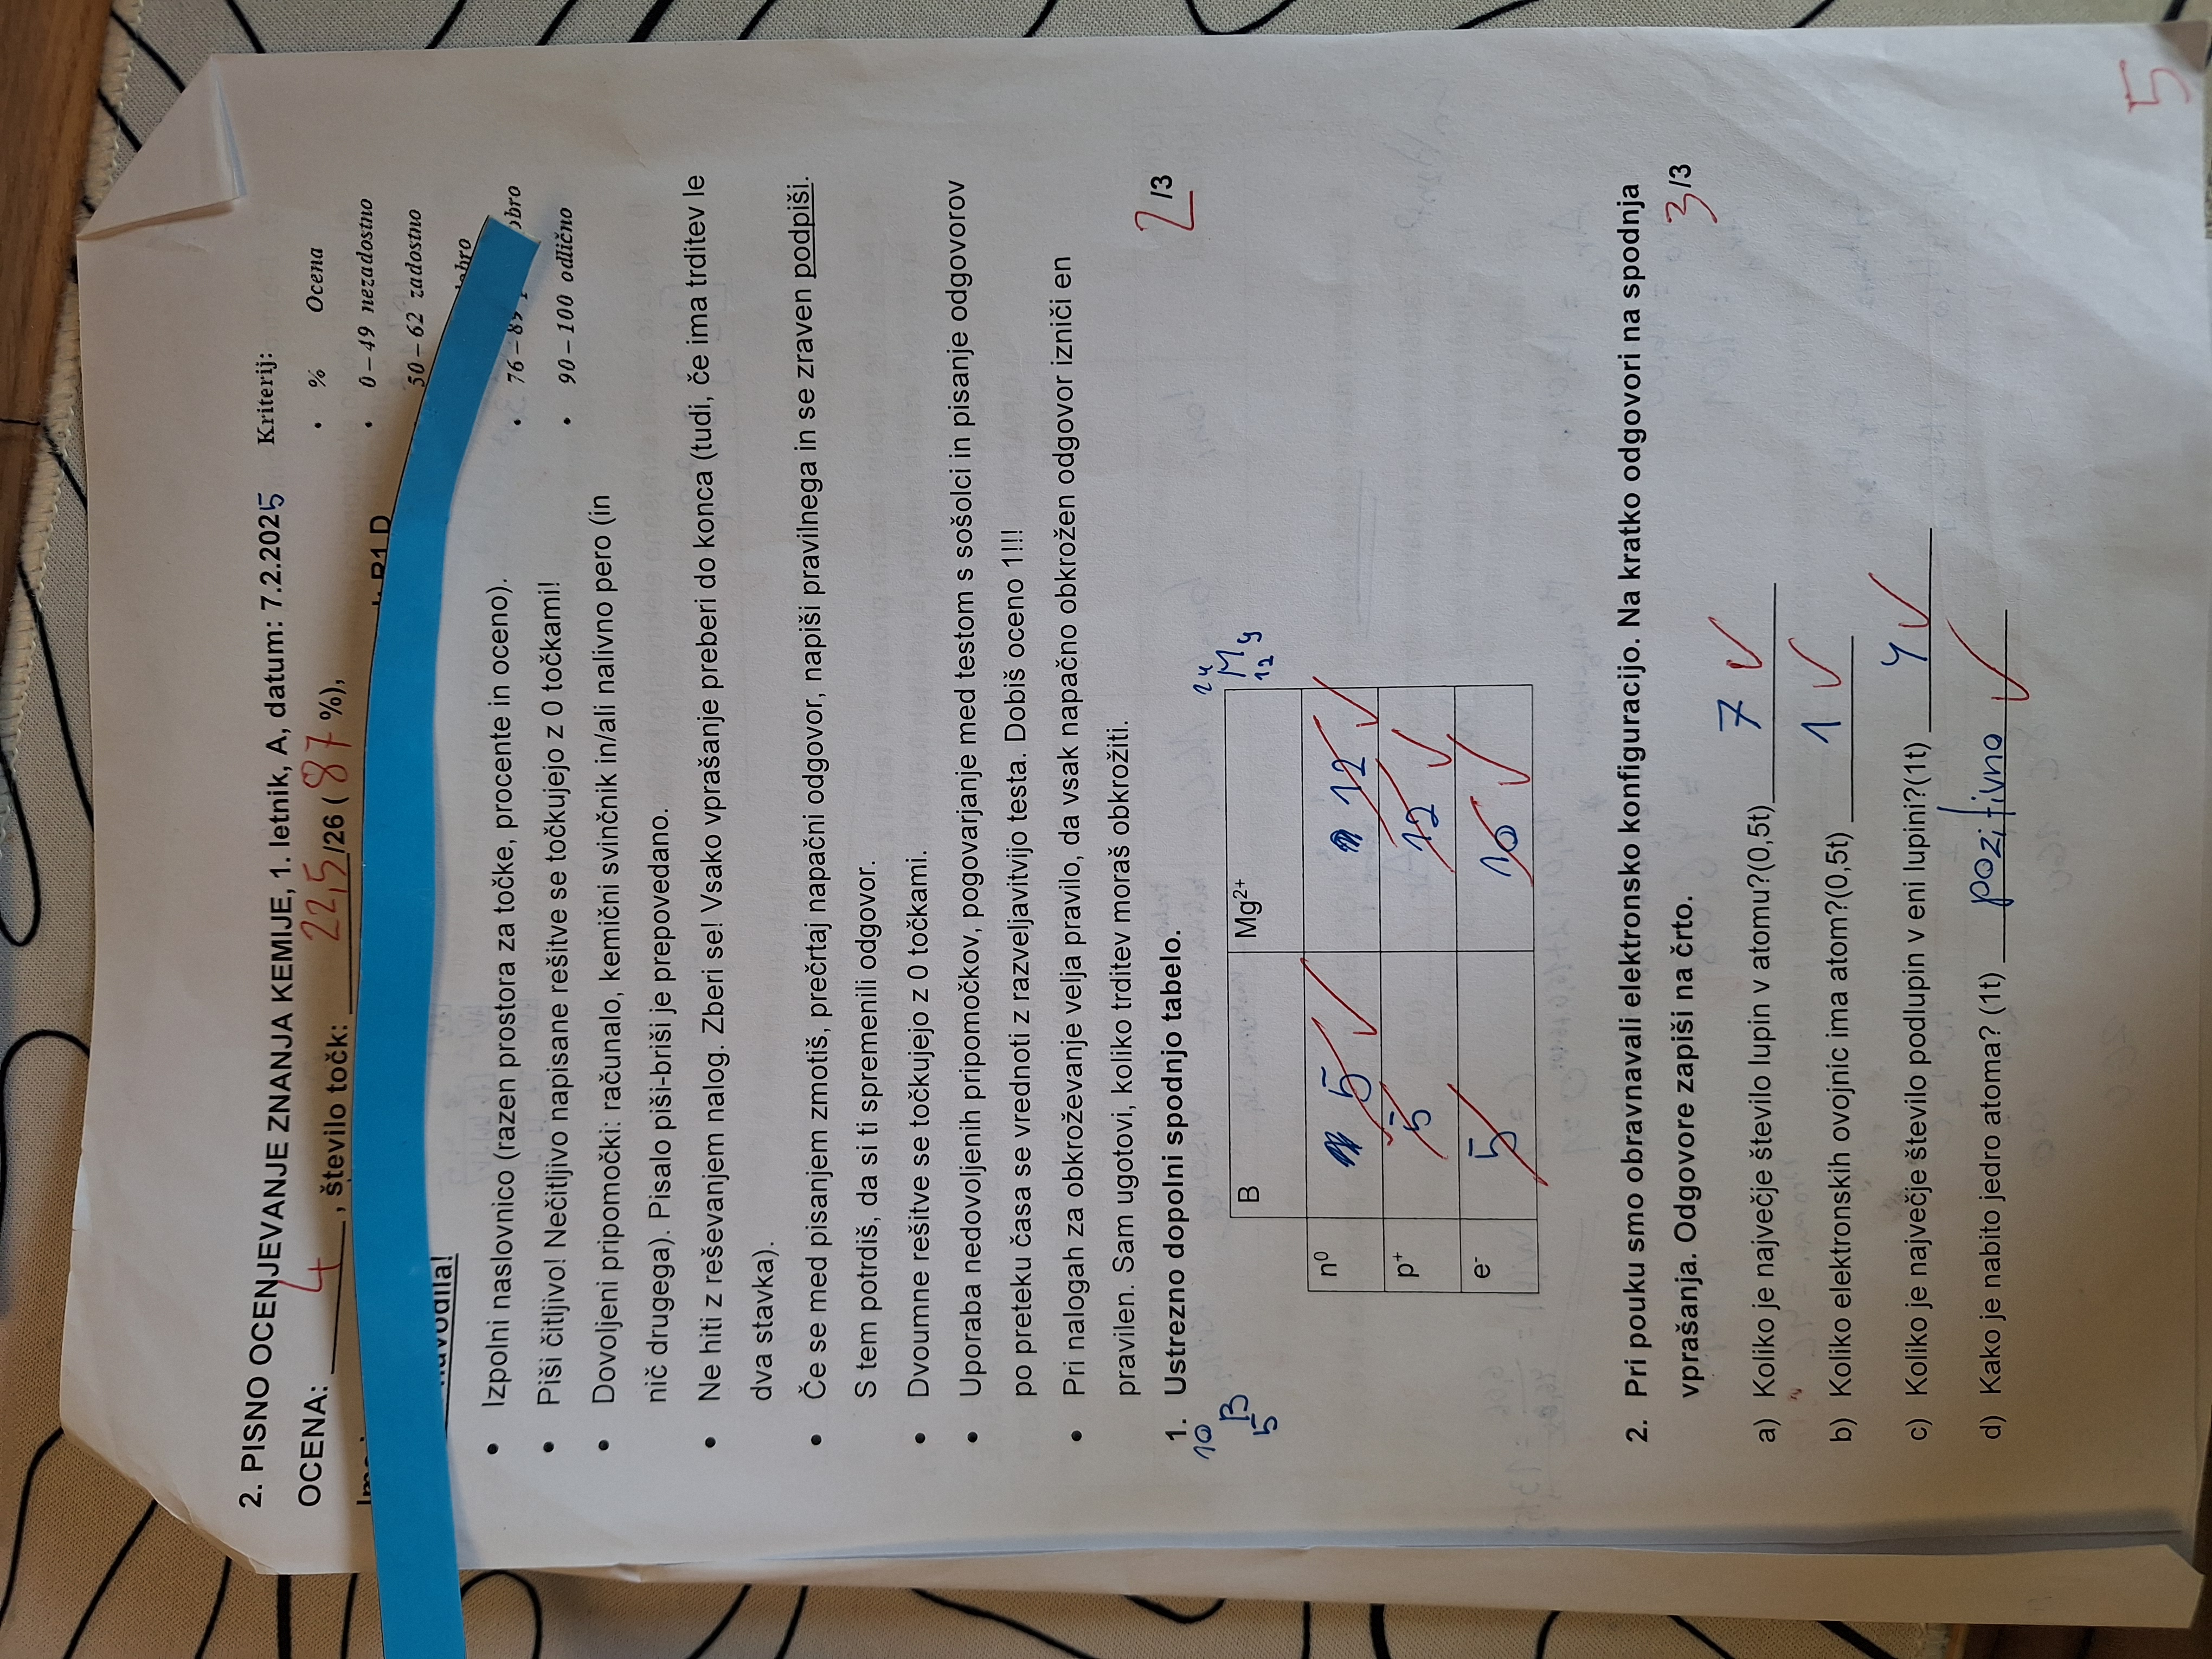 2. PISNO OCENJEVANJE ZNANJA KEMIJE, 1. letnik, A, datum: 7.2.2025
Kriterij:
OCENA: 4, število točk: 22,5/26 (87 %),
• % Ocena
• 0 – 49 nezadostno
50 – 62 zadostno
• 90 – 100 odlično
• Izpolni naslovnico (razen prostora za točke, procente in oceno).
• Piši čitljivo! Nečitljivo napisane rešitve se točkujejo z 0 točkami!
• Dovoljeni pripomočki: računalo, kemični svinčnik in/ali nalivno pero (in
nič drugega). Pisalo piši-briši je prepovedano.
• Ne hiti z reševanjem nalog. Zberi se! Vsako vprašanje preberi do konca (tudi, če ima trditev le
dva stavka).
• Če se med pisanjem zmotiš, prečrtaj napačni odgovor, napiši pravilnega in se zraven podpiši.
S tem potrdiš, da si ti spremenili odgovor.
• Dvoumne rešitve se točkujejo z 0 točkami.
• Uporaba nedovoljenih pripomočkov, pogovarjanje med testom s sošolci in pisanje odgovorov
po preteku časa se vrednoti z razveljavitvijo testa. Dobiš oceno 1!!!
• Pri nalogah za obkroževanje velja pravilo, da vsak napačno obkrožen odgovor izniči en
pravilen. Sam ugotovi, koliko trditev moraš obkrožiti.
1. Ustrezno dopolni spodnjo tabelo. 2/3
10 B 5
24 Mg 12
B Mg2+
n0 5 12
p+ 5 12
e- 5 10
2. Pri pouku smo obravnavali elektronsko konfiguracijo. Na kratko odgovori na spodnja
vprašanja. Odgovore zapiši na črto. 3/3
a) Koliko je največje število lupin v atomu?(0,5t) 7
b) Koliko elektronskih ovojnic ima atom?(0,5t) 1
c) Koliko je največje število podlupin v eni lupini?(1t) 4
d) Kako je nabito jedro atoma? (1t) pozitivno
5